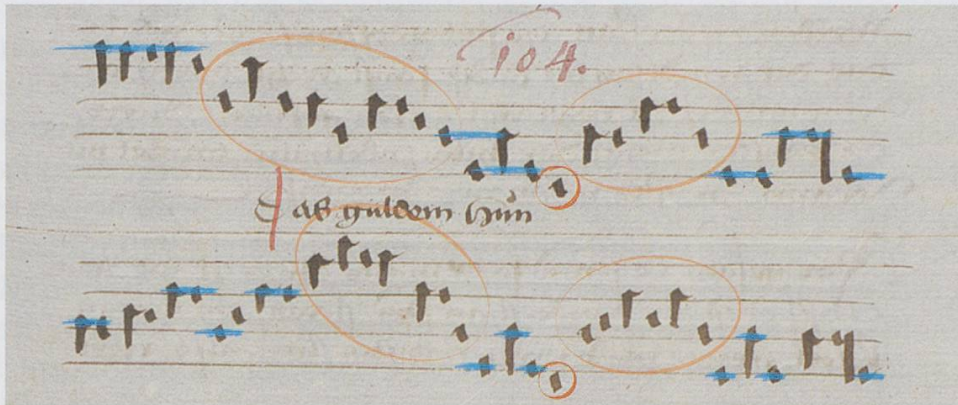 104.
Das guldein hün